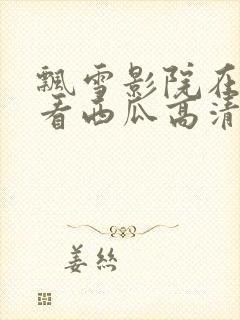 飘雪影院在
看西瓜高清
姜丝